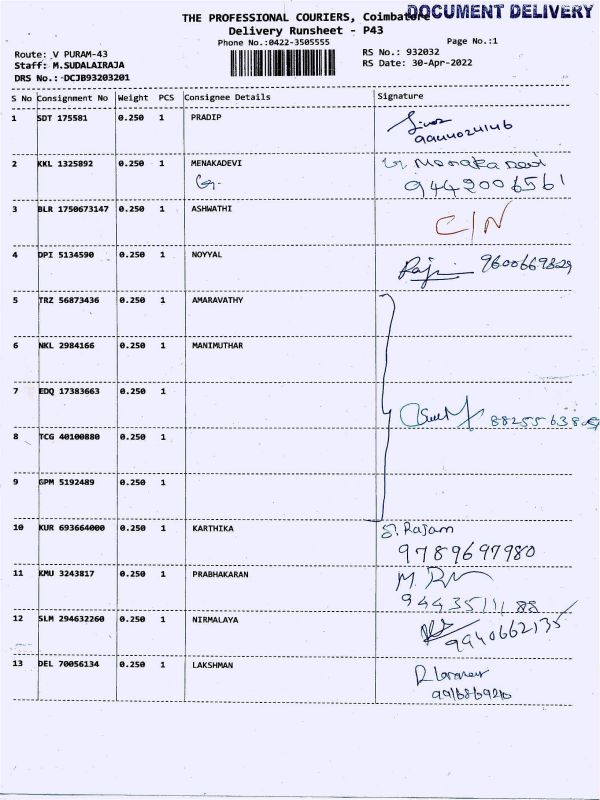 DOCUMENT DELIVERY
THE PROFESSIONAL COURIERS, Coimbatore
Delivery Runsheet - P43
Phone No.:0422-3505555
Page No.:1
Route: V PURAM-43
RS No.: 932032
Staff: M.SUDALAIRAJA
RS Date: 30-Apr-2022
DRS No.: DCJB93203201
S No Consignment No Weight PCS Consignee Details Signature
1 SDT 175581 0.250 1 PRADIP
9944024146
2 KKL 1325892 0.250 1 MENAKADEVI
9442006561
3 BLR 1750673147 0.250 1 ASHWATHI C/N
4 DPI 5134590 0.250 1 NOYYAL Raji 9600669829
5 TRZ 56873436 0.250 1 AMARAVATHY
6 NKL 2984166 0.250 1 MANIMUTHAR
7 EDQ 17383663 0.250 1
8 TCG 40100880 0.250 1
9 GPM 5192489 0.250 1
10 KUR 693664000 0.250 1 KARTHIKA S. Rajam
9789697980
11 KMU 3243817 0.250 1 PRABHAKARAN
9443511188
12 SLM 294632260 0.250 1 NIRMALAYA 9940662135
13 DEL 70056134 0.250 1 LAKSHMAN